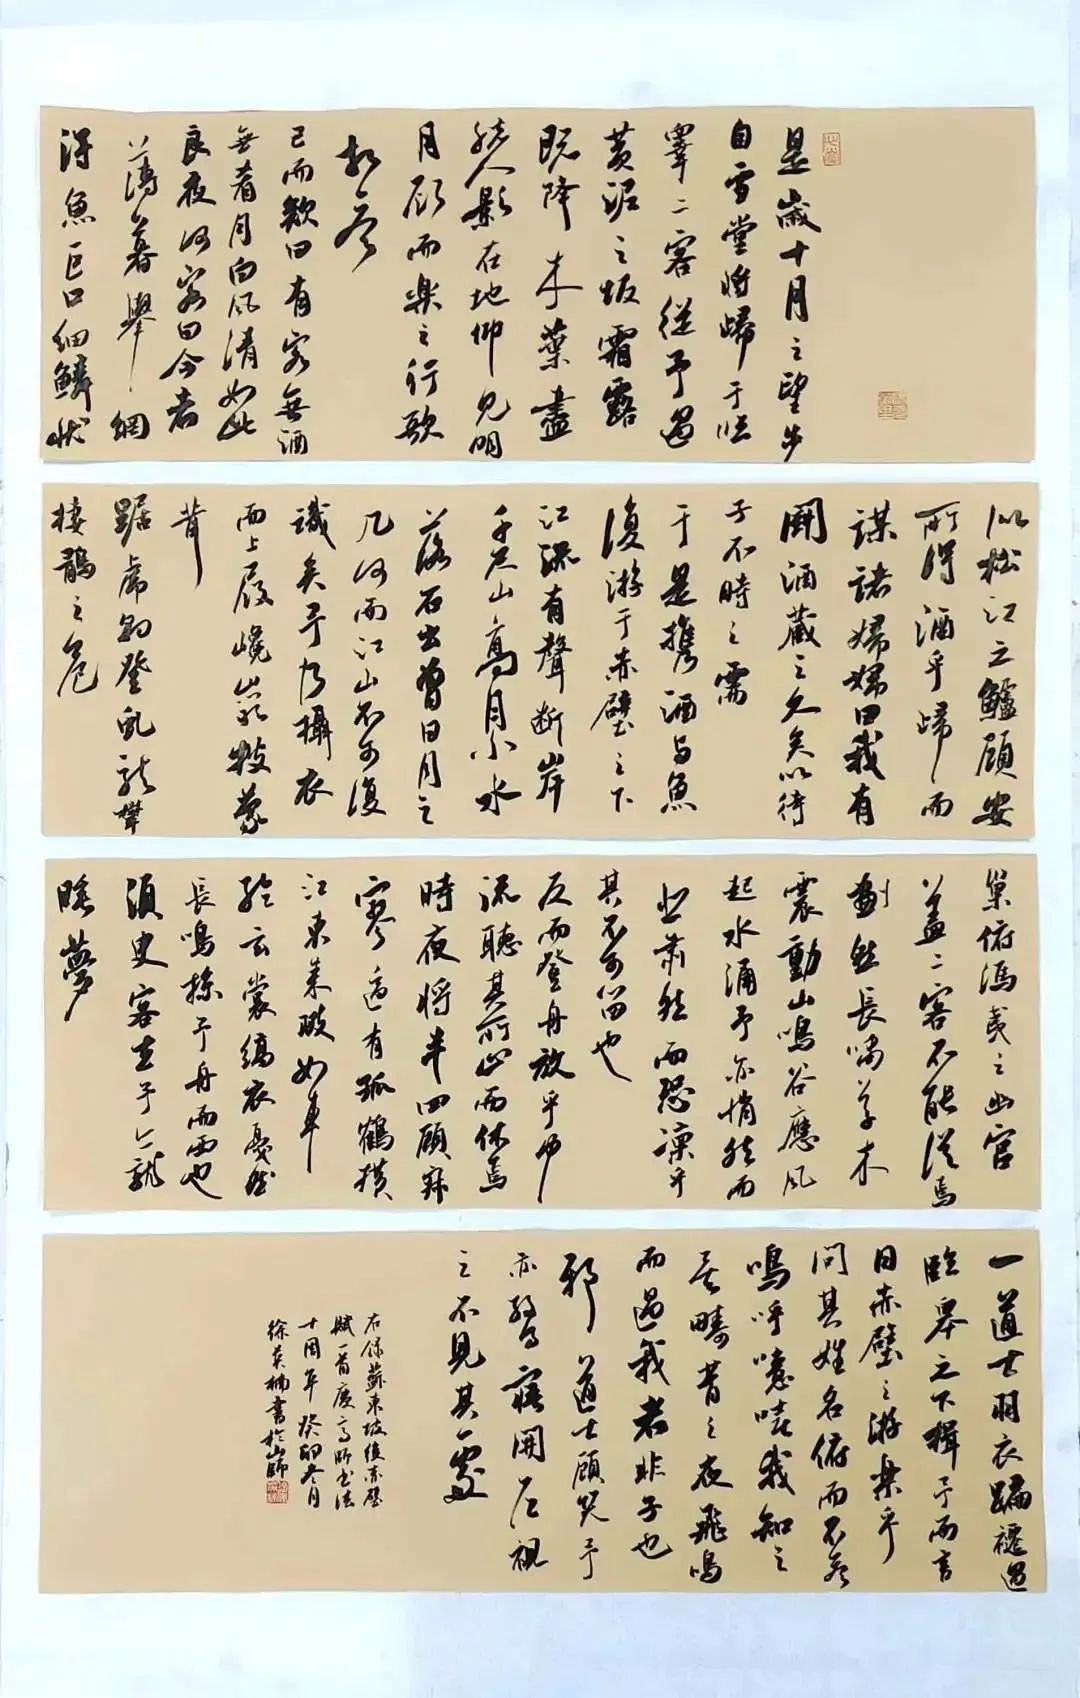 是歲十月之望步
自雪堂將歸于臨
睾二客從予過
黃泥之坂霜露
既降木葉盡
脫人影在地仰見明
月顧而樂之行歌
相答
已而歎曰有客無酒
無肴月白風清如此
良夜何客曰今者
薄暮舉網
得魚巨口細鱗狀
似松江之鱸顧安
所得酒乎歸而
謀諸婦婦曰我有
鬭酒藏之久矣以待
子不時之需
于是攜酒与魚
復游于赤壁之下
江流有聲斷岸
千尺山高月小水
落石出曾日月之
几何而江山不可復
識矣予乃攝衣
而上履巉岩披蒙
茸
踞虎豹登虬龍攀
棲鶻之危
巢俯馮夷之幽宮
蓋二客不能從焉
劃然長嘯草木
震動山鳴谷應風
起水涌予亦悄然而
悲肅然而恐凜乎
其不可留也
反而登舟放乎中
流聽其所止而休焉
時夜將半四顧寂
寥適有孤鶴橫
江東來翅如車
輪玄裳縞衣戛然
長鳴掠予舟而西也
須臾客去予亦就
睡夢
一道士羽衣蹁褼過
臨皋之下揖予而言
曰赤壁之游樂乎
問其姓名俯而不答
嗚呼噫嘻我知之
矣疇昔之夜飛鳴
而過我者非子也
邪道士顧笑予
亦驚寤開戶視
之不見其處
右錄蘇東坡後赤壁
賦一首慶高師書法
十周年癸卯冬月
徐英楠書於山師